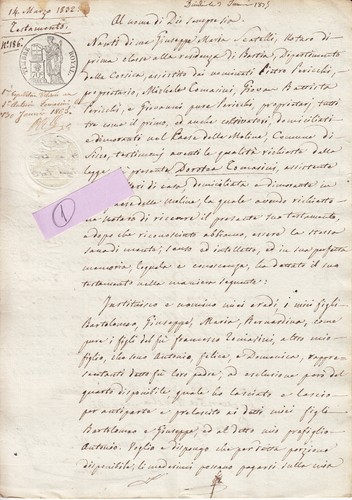 14. Marzo 1832.
Testamento
N.° 186.
Al nome di Dio sempre sia
Nanti di me Giuseppe Maria Notaro di
prima classe alla residenza di Bastia, dipartimento
della Corsica, assistito dai nominati Pietro Pericchi,
proprietario, Michele Tomasini, Giovan Battista
Pericchi, e Giovanni pure Pericchi, proprietarj tutti
come il primo, ad anche coltivatori, domiciliati
e dimoranti nel Paese delle Moline, Comune di
Sisco, testimonj aventi le qualità richieste dalla
Legge, presente Dorotea Tomasini, assistente
di casa domiciliata e dimorante in
paese delle Moline, la quale avendo richiesto
notaro di ricevere il presente suo testamento,
e dopo che riconosciuto abbiamo, essere la stessa
sana di mente, ed intelletto, ed in sua perfetta
memoria, e conoscenza, ha dettato il suo
testamento nella maniera seguente:
1
Instituisco e nomino miei eredi, i miei figli
Bartolomeo, Giuseppe, Maria, Bernardina, come
pure i figli del fù Francesco Tomasini, altro mio
figlio, che sono Antonio, Felice, e Domenica, rappre-
sentanti detto fù loro padre, ad esclusione però del
quarto disponibile quale ho lasciato e lascio
per antiparte e prelascito ai detti miei figli
Bartolomeo e Giuseppe, ed al detto mio
Antonio. Voglio e dispongo che per detta porzione
disponibile, li medesimi possano pagarsi sulla mia